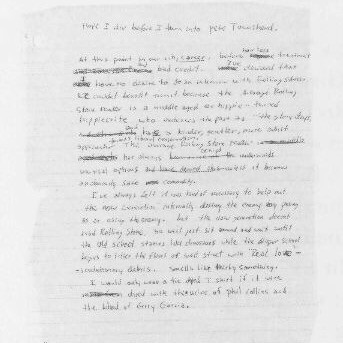 Hope I die before I turn into Pete Townshend.
At this point in our uh, career, before hair loss treatment
and bad credit. I've decided that
I have no desire to do an interview with Rolling Stone.
We couldn't benefit from it because the average Rolling
Stone reader is a middle aged ex hippie - turned
hippiecrite who embraces the past as "the glory days
and has a kinder, gentler, more adult
approach The average Rolling Stone reader
has always the underworld
musical options until it became
safe commodity.
I've always felt it was kind of necessary to help out
the now generation internally destroy the enemy by posing
as or using the enemy. but the now generation doesnt
read Rolling Stone. so well just sit around and wait until
the old school starves like dinosaurs while the diaper school
begins to litter the floors of wall street with "Real love -
evolutionary debris. smells like thirty something.
I would only wear a tie dyed T shirt if it were
dyed with the urine of phil collins and
the blood of Gerry Garcia.